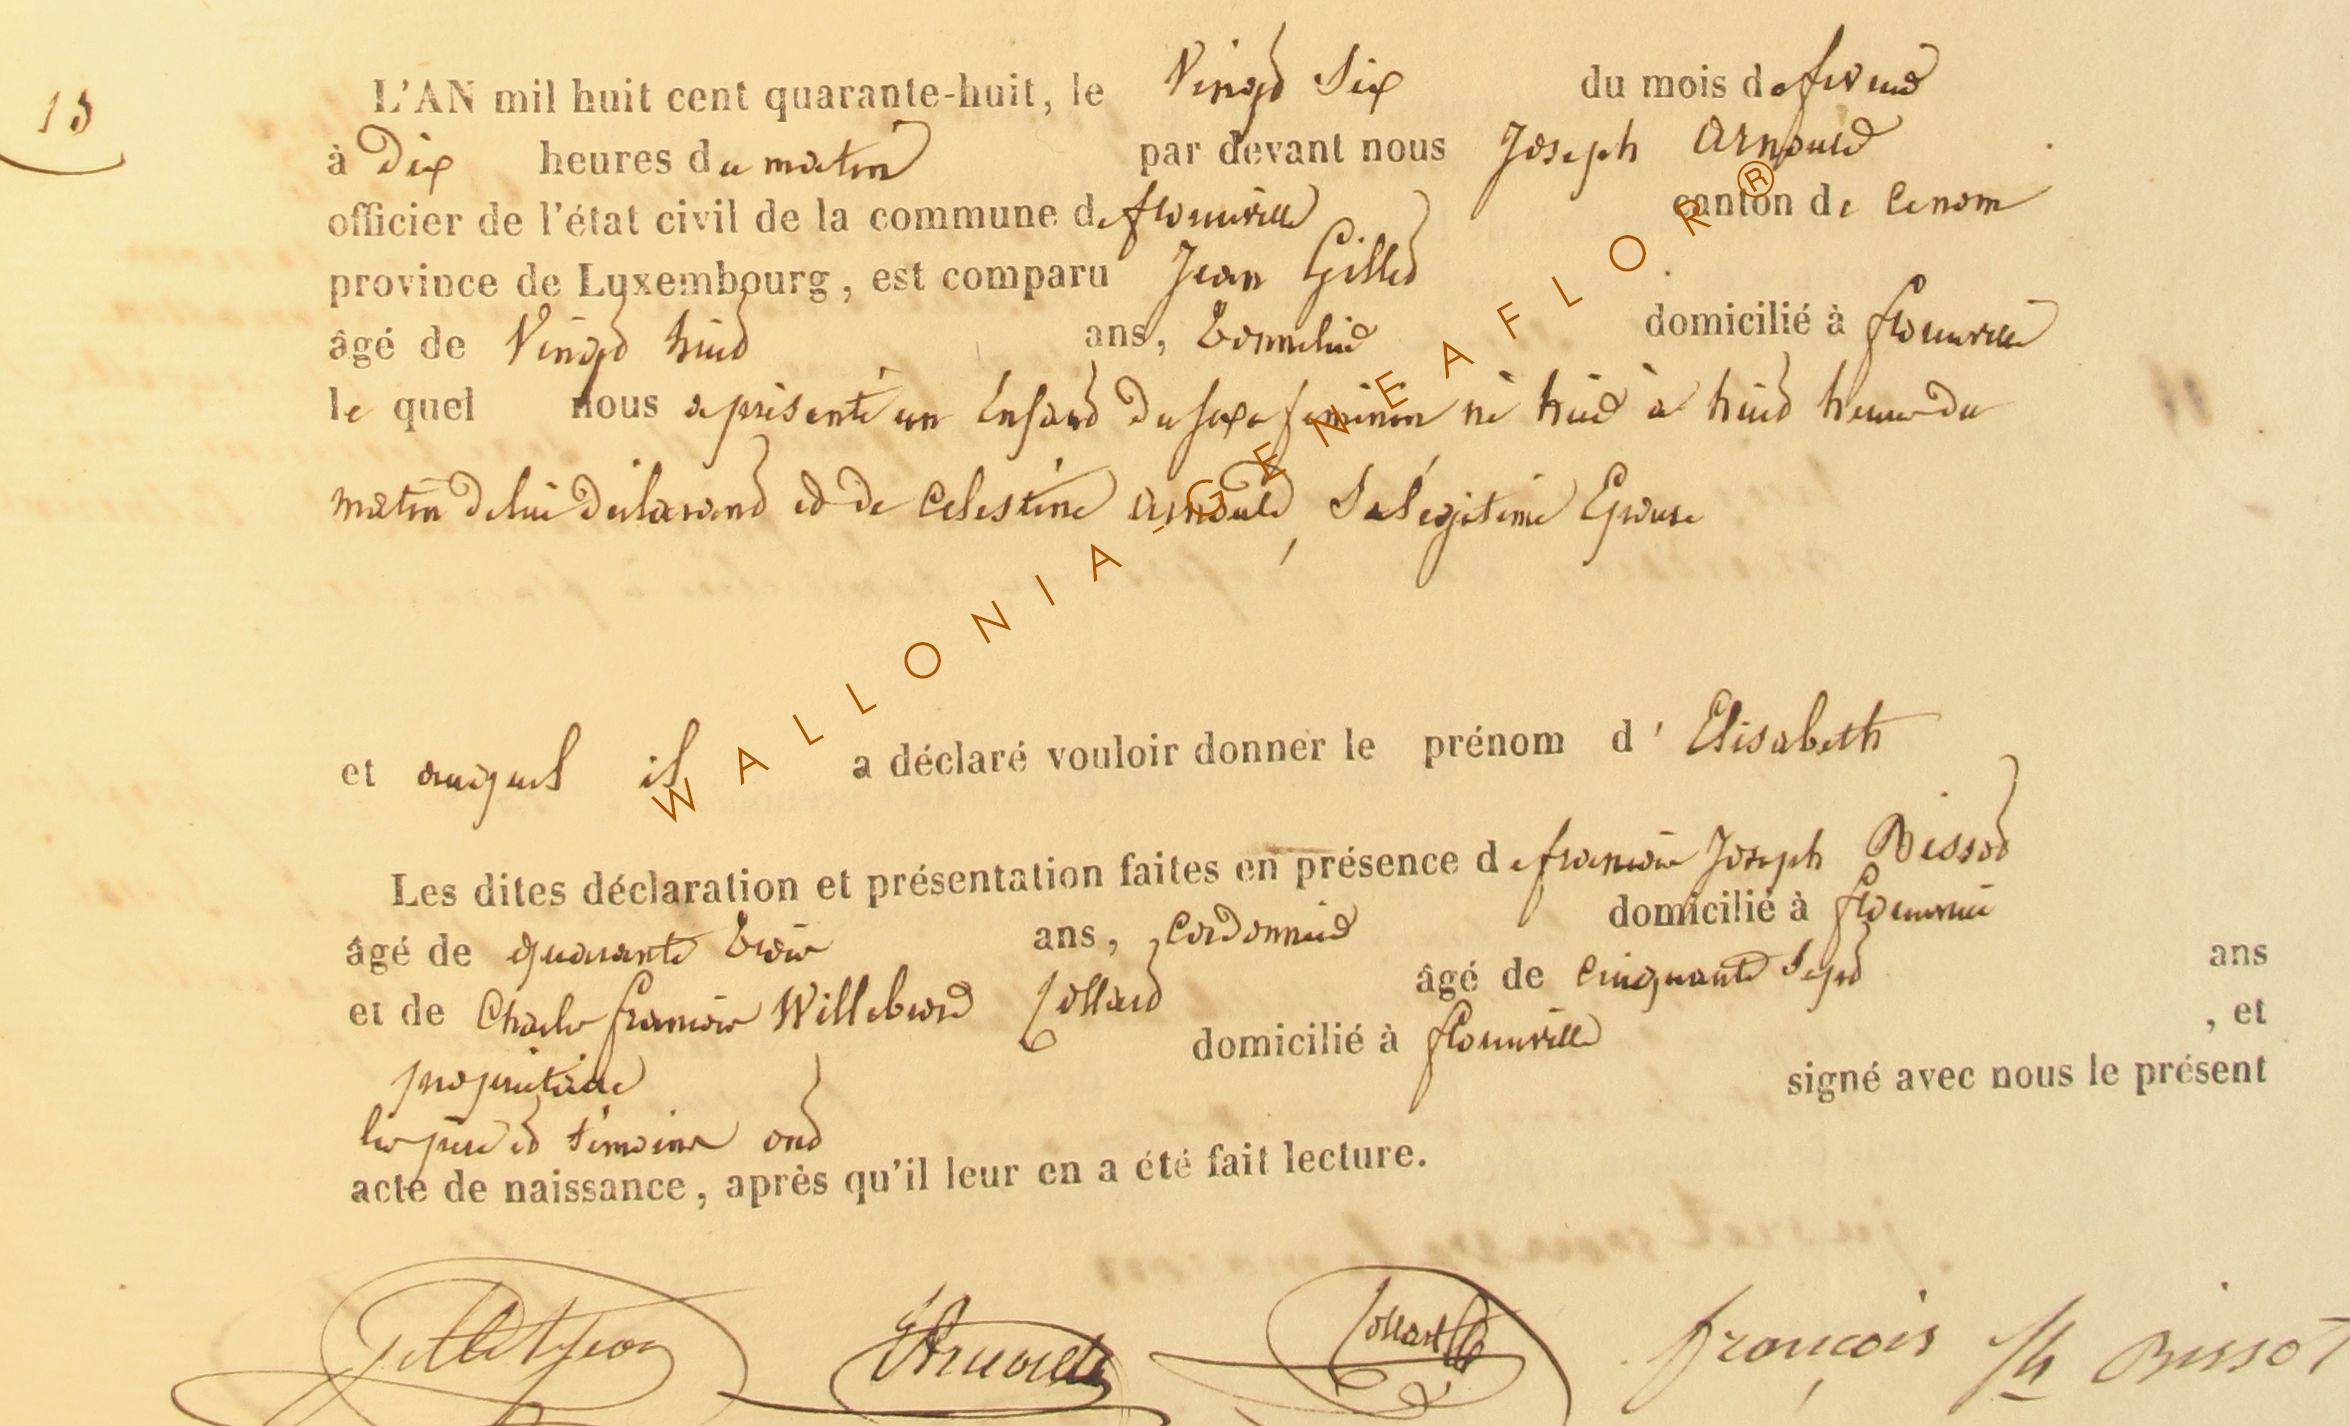 13
L'AN mil huit cent quarante-huit, le Vingt Six du mois de fevrier
à Dix heures du matin par devant nous Joseph Arnould
officier de l'état civil de la commune de florenville canton de ce nom
province de Luxembourg, est comparu Jean Gillet
âgé de Vingt huit ans, tonnelier domicilié à florenville
le quel nous a présenté un Enfant du sexe feminin né hier à huit heures du
matin de lui déclarant et de Celestine Arnould, Sa légitime Epouse
et auquel il a déclaré vouloir donner le prénom d' Elisabeth
Les dites déclaration et présentation faites en présence de françois Joseph Bissot
âgé de quarante trois ans, Cordonnier domicilié à florenville
et de Charles françois Willebrord Collard âgé de cinquante Sept ans
propriétaire domicilié à florenville , et
les père et témoins ont signé avec nous le présent
acte de naissance, après qu'il leur en a été fait lecture.
Gillet Jean Collard françois Bissot
WALLONIA-GENEAFLOR®